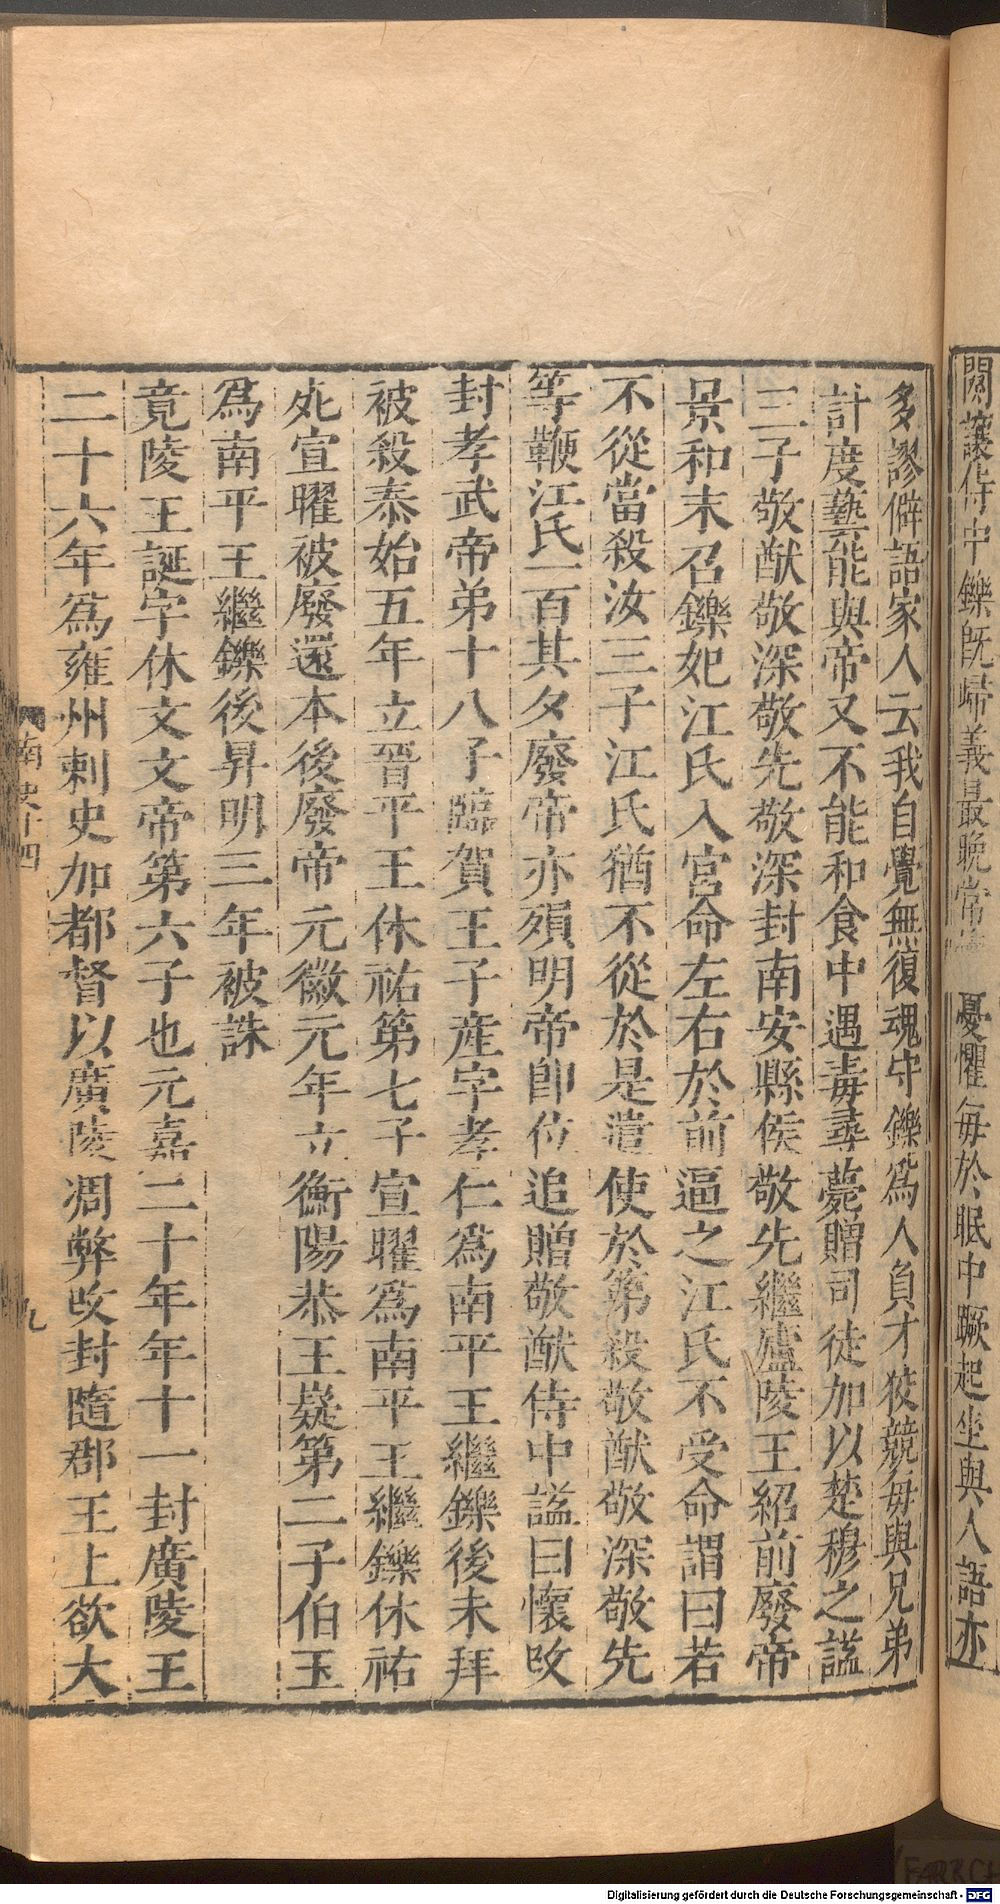 閡讓侍中鑠旣歸義最晚常 憂懼每於眠中蹶起坐與人語亦
多謬僻語家人云我自覺無復魂守鑠爲人負才狡競每與兄弟
計度藝能與帝又不能和食中遇毒尋薨贈司徒加以楚穆之諡
三子敬猷敬深敬先敬深封南安縣侯敬先繼廬陵王紹前廢帝
景和末召鑠妃江氏入宮命左右於前逼之江氏不受命謂曰若
不從當殺汝三子江氏猶不從於是遣使於第殺敬猷敬深敬先
等鞭江氏一百其夕廢帝亦殞明帝卽位追贈敬猷侍中諡曰懷改
封孝武帝弟十八子臨賀王子產字孝仁爲南平王繼鑠後未拜
被殺泰始五年立晉平王休祐第七子宣曜爲南平王繼鑠休祐
死宣曜被廢還本後廢帝元徽元年立衡陽恭王嶷第二子伯玉
爲南平王繼鑠後昇明三年被誅
竟陵王誕字休文文帝第六子也元嘉二十年年十一封廣陵王
二十六年爲雍州刺史加都督以廣陵凋弊改封隨郡王上欲大
南史十四
九
Digitalisierung gefördert durch die Deutsche Forschungsgemeinschaft - DFG